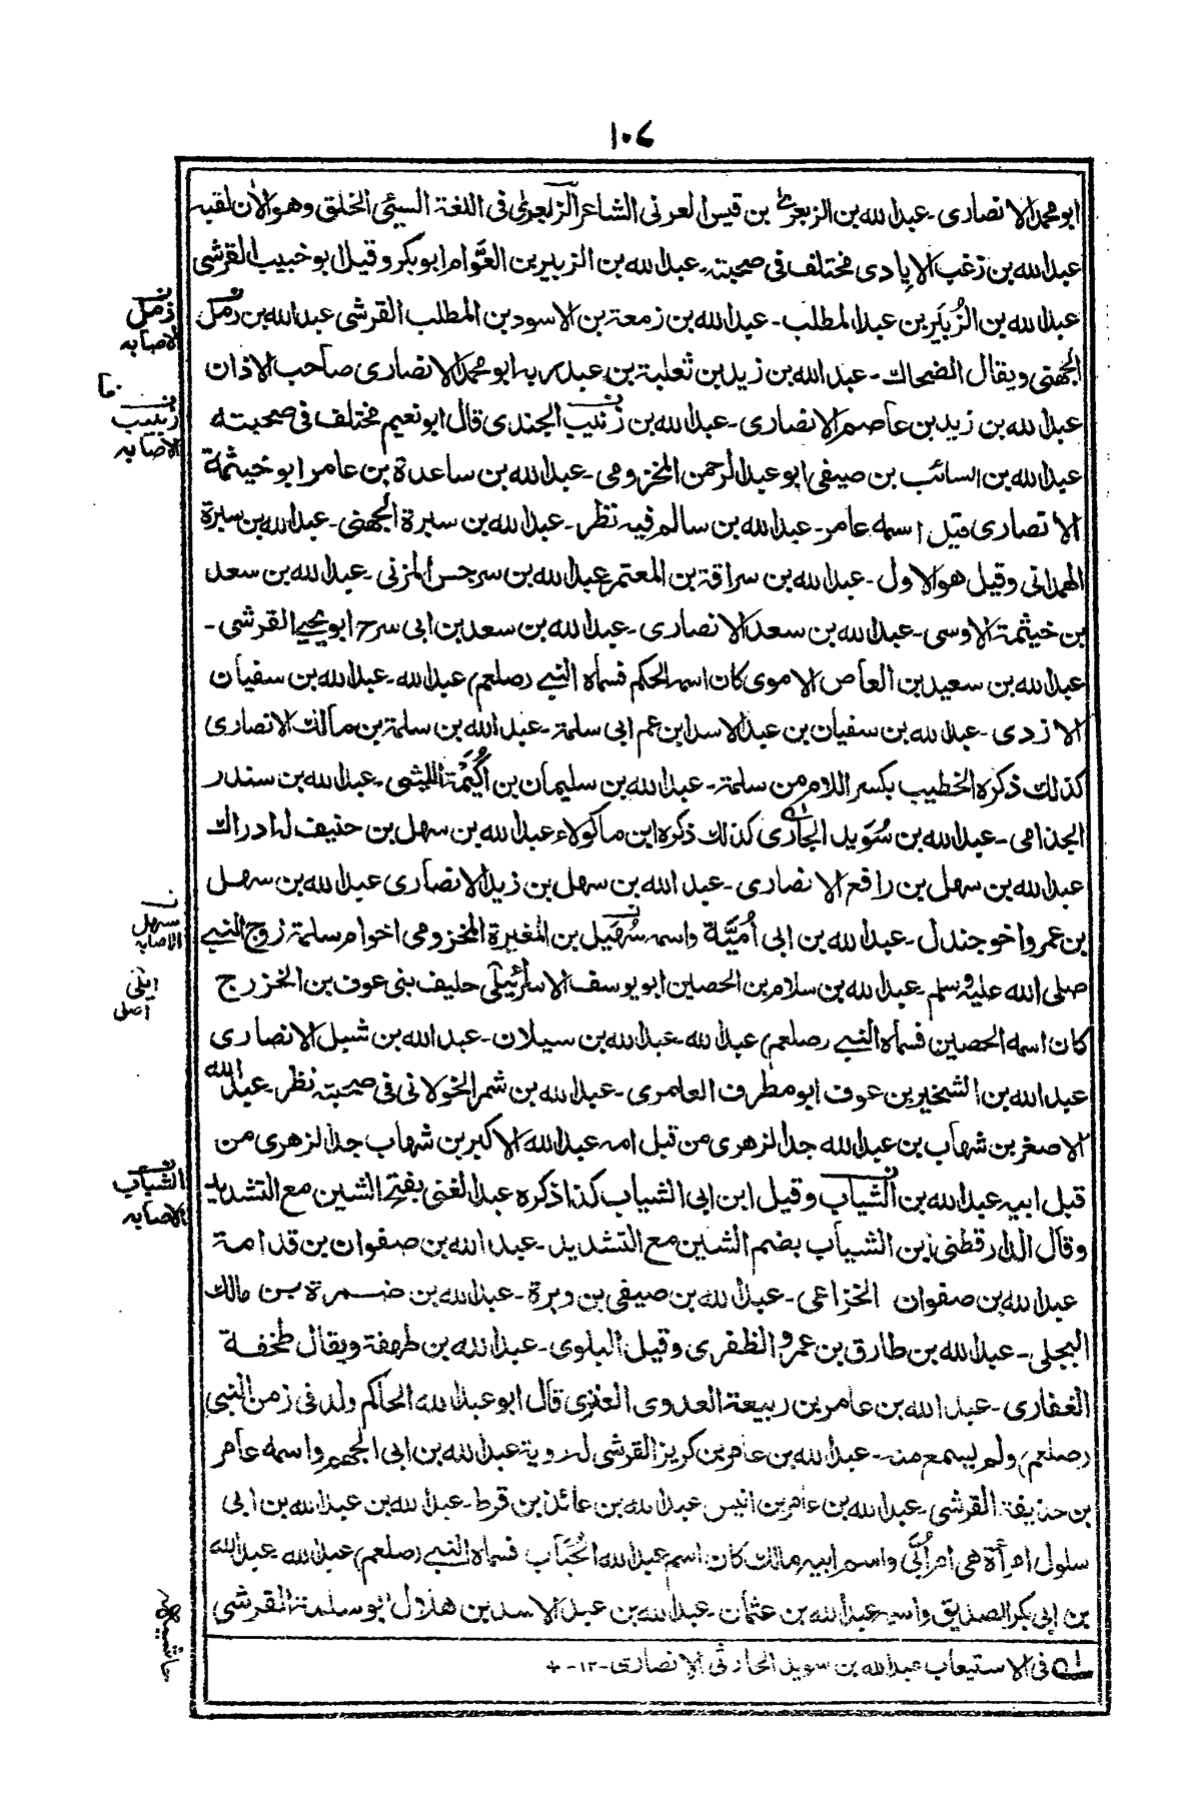 ١٠٧
ابو محمد الانصارى - عبد الله بن الزبعرى بن قيس العرنى الشاعر الزبعرى فى اللغة السيئ الخلق وهو الان لقبه
عبد الله بن زغب الايادى مختلف فى صحبته - عبد الله بن الزبير بن العوّام ابو بكر وقيل ابو خبيب القرشى
عبد الله بن الزُبَير بن عبد المطلب - عبد الله بن زمعة بن الاسود بن المطلب القرشى عبد الله بن زمل
الجهنى ويقال الضحاك - عبد الله بن زيد بن ثعلبة بن عبد ربه ابو محمد الانصارى صاحب الاذان
عبد الله بن زيد بن عاصم الانصارى - عبد الله بن زنيب الجندى قال ابو نعيم مختلف فى صحبته
عبد الله بن السائب بن صيفى ابو عبد الرحمن المخزومى - عبد الله بن ساعدة بن عامر ابو خيثمة
الانصارى قيل اسمه عامر - عبد الله بن سالم فيه نظر - عبد الله بن سبرة الجهنى - عبد الله بن سبرة
الهمدانى وقيل هو الاول - عبد الله بن سراقة بن المعتمر عبد الله بن سرجس المزنى - عبد الله بن سعد
بن خيثمة الاوسى - عبد الله بن سعد الانصارى - عبد الله بن سعد بن ابى سرح ابو يحيى القرشى -
عبد الله بن سعيد بن العاص الاموى كان اسمه الحكم فسماه النبى (صلعم) عبد الله - عبد الله بن سفيان
الازدى - عبد الله بن سفيان بن عبد الاسد ابن عم ابى سلمة - عبد الله بن سلمة بن مالك الانصارى
كذلك ذكره الخطيب بكسر اللام من سلمة - عبد الله بن سليمان بن اُكَيْمَة الليثى - عبد الله بن سندر
الجذامى - عبد الله بن سُوَيد الحارى كذلك ذكره ابن ماكولاء عبد الله بن سهل بن حنيف له ادراك
عبد الله بن سهل بن رافع الانصارى - عبد الله بن سهل بن زيد الانصارى عبد الله بن سهل
بن عمرو اخو جندل - عبد الله بن ابى اُمَيَّة واسمه سُهَيل بن المغيرة المخزومى اخو ام سلمة زوج النبى
صلى الله عليه وسلم - عبد الله بن سلام بن الحصين ابو يوسف الاسرائيلى حليف بنى عوف بن الخزرج
كان اسمه الحصين فسماه النبى (صلعم) عبد الله - عبد الله بن سيلان - عبد الله بن شبل الانصارى
عبد الله بن الشخير بن عوف ابو مطرف العامرى - عبد الله بن شمر الخولانى فى صحبته نظر - عبد الله
الاصغر بن شهاب بن عبد الله جد الزهرى من قبل امه عبد الله الاكبر بن شهاب جد الزهرى من
قبل ابيه عبد الله بن الشياب وقيل ابن ابى الشياب كذا ذكره عبد الغنى بفتح الشين مع التشديد
وقال الدارقطنى ابن الشياب بضم الشين مع التشديد - عبد الله بن صفوان بن قدامة
عبد الله بن صفوان الخزاعى - عبد الله بن صيفى بن وبرة - عبد الله بن ضمرة بن مالك
البجلى - عبد الله بن طارق بن عمرو الظفرى وقيل البلوى - عبد الله بن طهفة ويقال طخفة
الغفارى - عبد الله بن عامر بن ربيعة العدوى العنزى قال ابو عبد الله الحاكم ولد فى زمن النبى
(صلعم) ولم يسمع منه - عبد الله بن عامر بن كريز القرشى له روية عبد الله بن ابى الجهم واسمه عامر
بن حذيفة القرشى - عبد الله بن عامر بن انيس عبد الله بن عائذ بن قرط - عبد الله بن عبد الله بن ابى
سلول امرأة هى ام اُبَىّ واسم ابيه مالك كان اسم عبد الله الحُبَاب فسماه النبى (صلعم) عبد الله - عبد الله
بن ابى بكر الصديق واسمه عبد الله بن عثمان - عبد الله بن عبد الاسد بن هلال ابو سلمة القرشى
فى الاستيعاب عبد الله بن سويد الحارثى الانصارى - ١٢ -
زمل
الاصابه
زبيب
الاصابه
سهل
الاصابه
الشياب
الاصابه
حاشيه